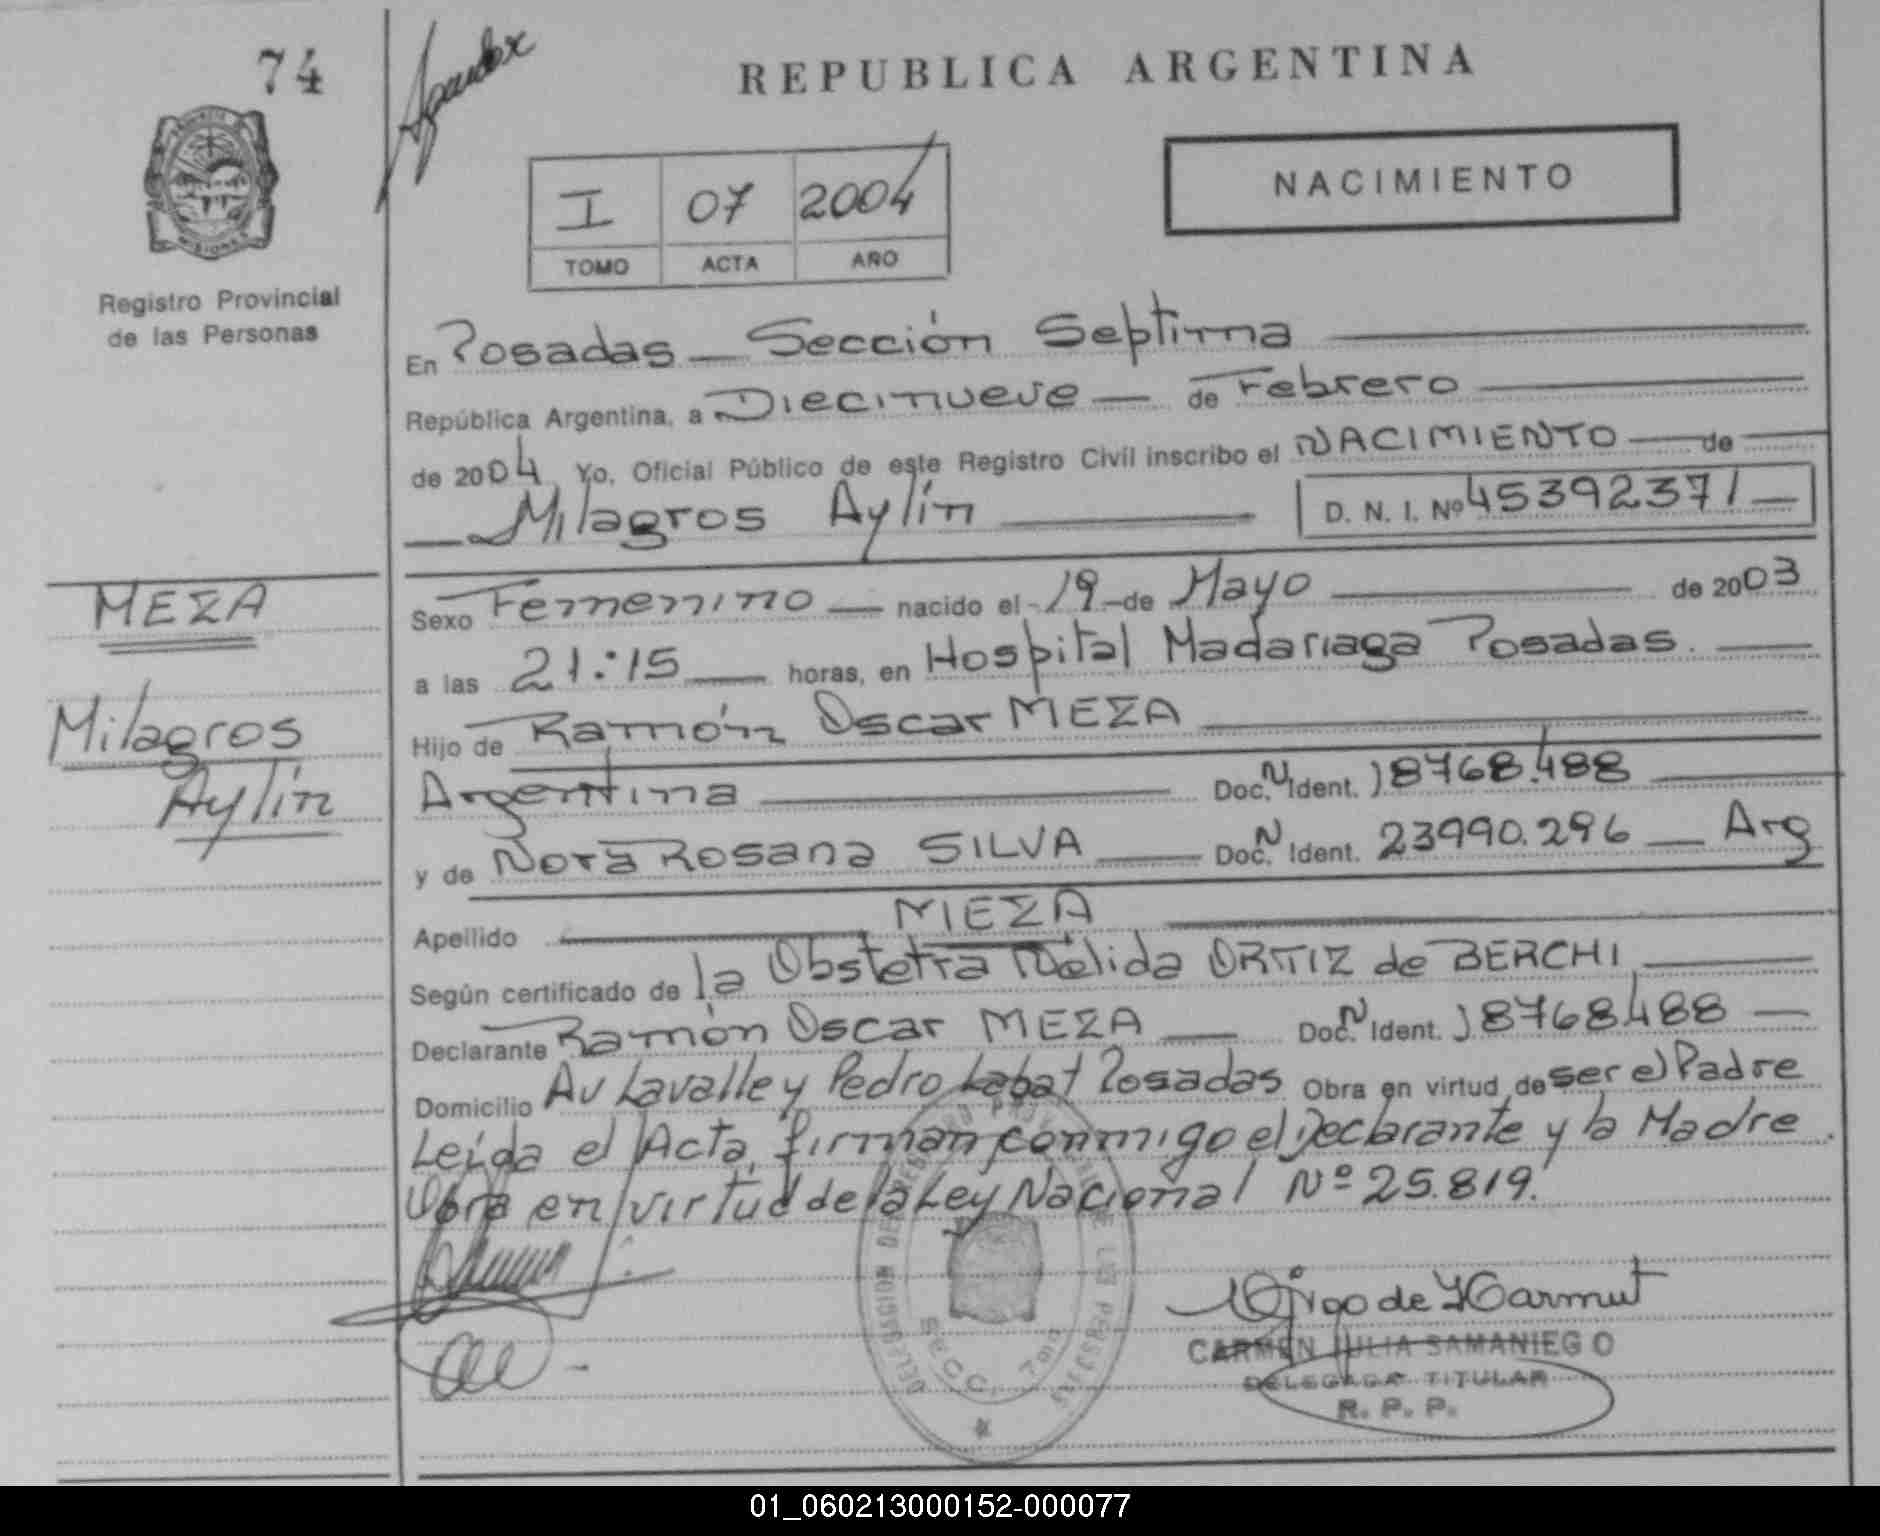 74
REPUBLICA ARGENTINA
PROVINCIA DE MISIONES
Registro Provincial
de las Personas
I 07 2004
TOMO ACTA AÑO
NACIMIENTO
En Posadas — Sección Septima
República Argentina, a Diecinueve — de Febrero
de 2004 Yo, Oficial Público de este Registro Civil inscribo el NACIMIENTO — de
Milagros Aylín D. N. I. Nº 45392371 —
MEZA
Milagros
Aylín
Sexo Femenino — nacido el 19 de Mayo de 2003
a las 21:15 horas, en Hospital Madariaga Posadas.
Hijo de Ramón Oscar MEZA
Argentina Doc. N Ident. 18768.488
y de Nora Rosana SILVA Doc. N Ident. 23990.296 — Arg
Apellido MEZA
Según certificado de la Obstetra Nélida ORTIZ de BERCHI
Declarante Ramón Oscar MEZA — Doc. N Ident. 18768488 —
Domicilio Av Lavalle y Pedro Labat Posadas Obra en virtud de ser el Padre
Leída el Acta, firman conmigo el Declarante y la Madre.
Obra en virtud de la Ley Nacional Nº 25.819.
CARMEN JULIA SAMANIEGO
DELEGADA TITULAR
R. P. P.
01_060213000152-000077